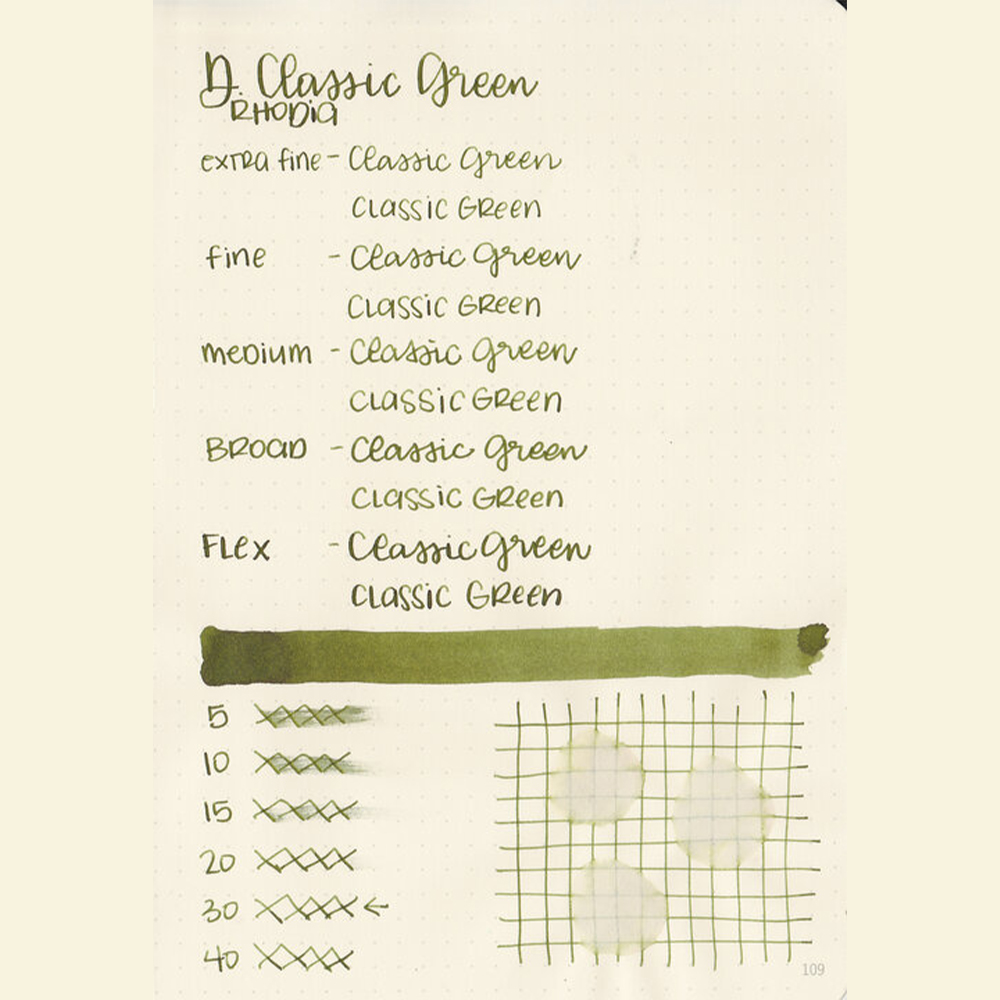 D. Classic Green
RHODIA
extra fine - Classic Green
Classic Green
fine - Classic Green
Classic Green
medium - Classic Green
Classic Green
BROAD - Classic Green
Classic Green
Flex - Classic Green
Classic Green
5
10
15
20
30 ←
40
109